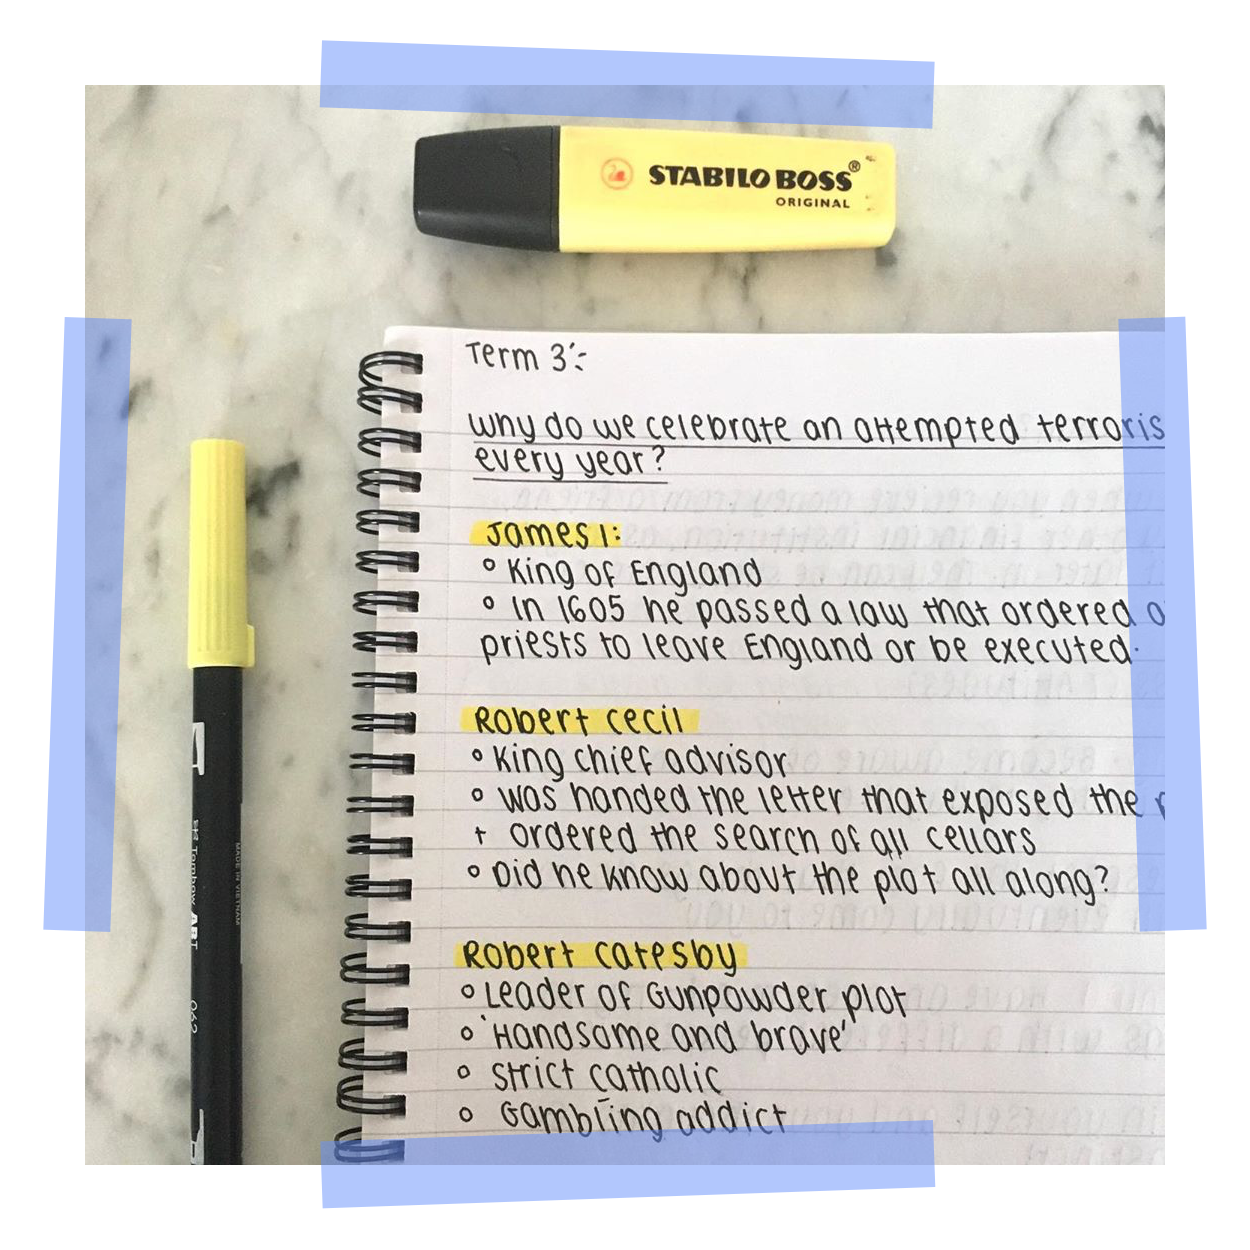 STABILO BOSS®
ORIGINAL
Term 3:-
Why do we celebrate an attempted terroris
every year?
James I:
° King of England
° In 1605 he passed a law that ordered
priests to leave England or be executed.
Robert Cecil
° King chief advisor
° Was handed the letter that exposed the
+ ordered the search of all cellars
° Did he know about the plot all along?
Robert Catesby
° Leader of Gunpowder plot
° 'Handsome and brave'
° Strict catholic
° Gambling addict
Tombow ABT
MADE IN VIETNAM
062